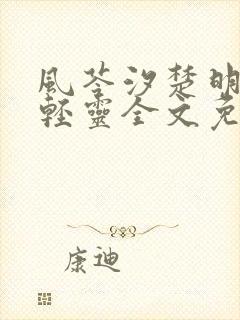 風苓汐楚明
輕靈全文免
康迪